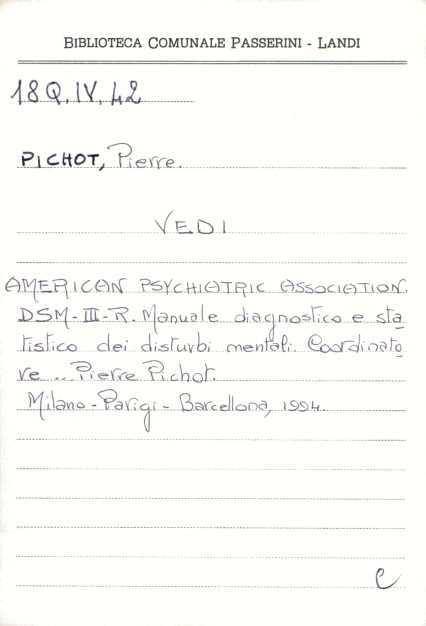 BIBLIOTECA COMUNALE PASSERINI - LANDI
18Q.IV.42
PICHOT, Pierre.
VEDI
AMERICAN PSYCHIATRIC ASSOCIATION.
DSM-III-R. Manuale diagnostico e sta
tistico dei disturbi mentali. Coordinato
re .. Pierre Pichot.
Milano - Parigi - Barcellona, 1994.
C